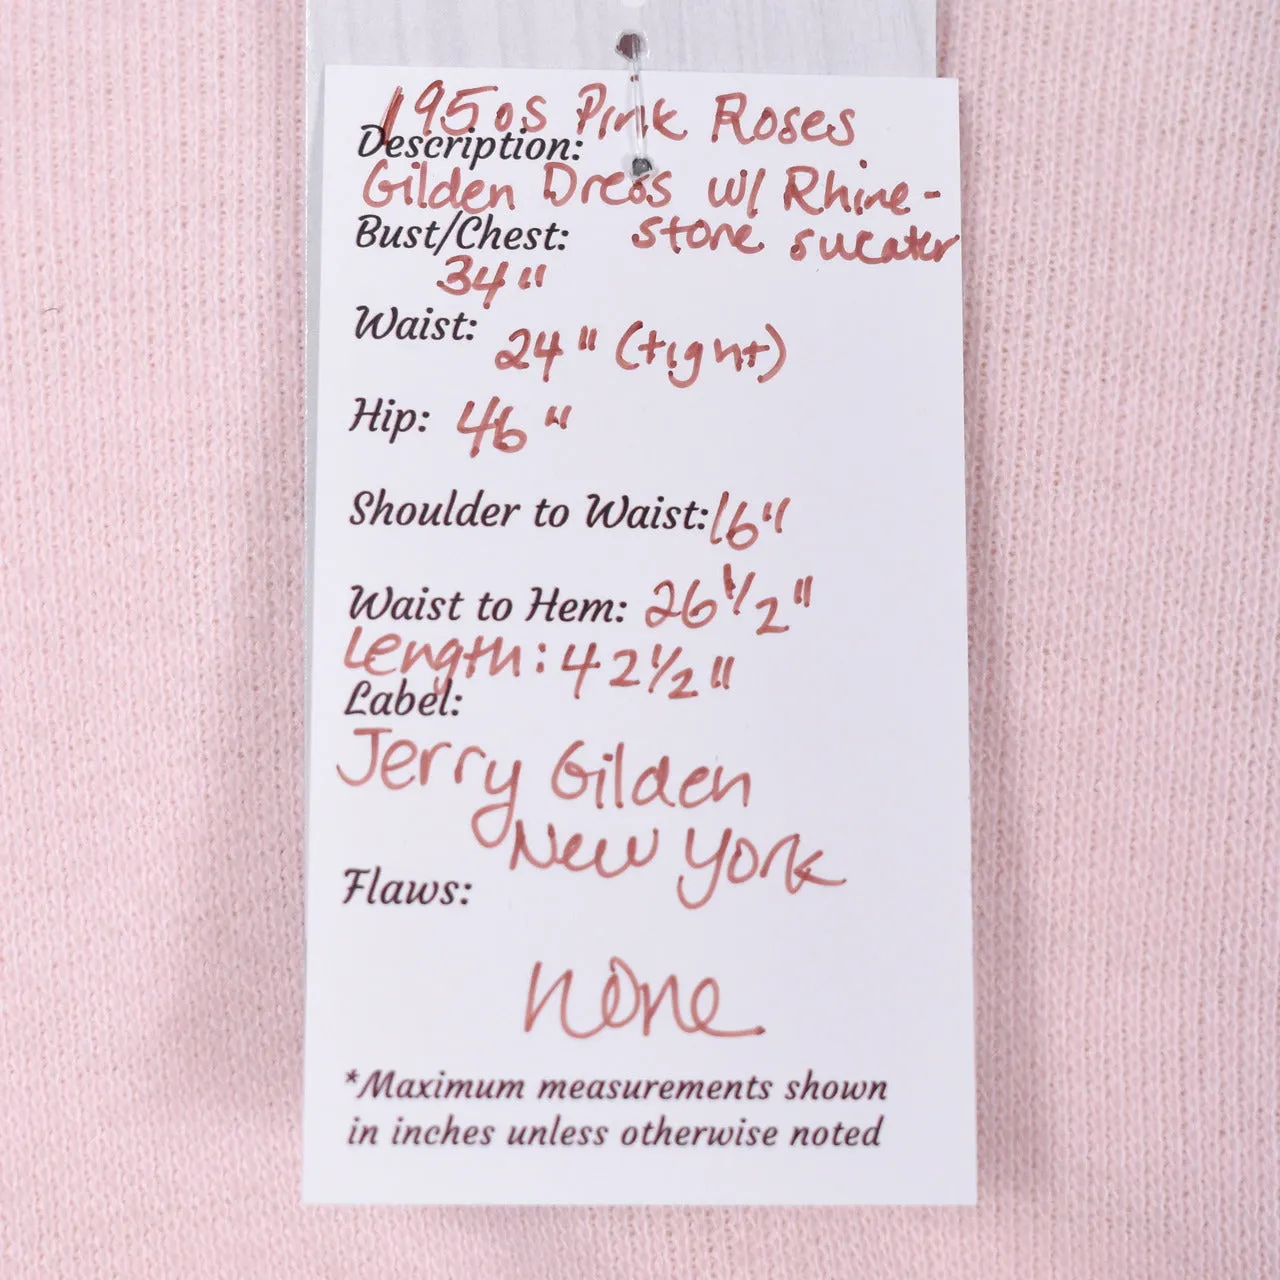 1950s Pink Roses
Description:
Gilden Dress w/ Rhine-
Bust/Chest: stone sweater
34"
Waist: 24" (tight)
Hip: 46"
Shoulder to Waist: 16"
Waist to Hem: 26 1/2"
Length: 42 1/2"
Label:
Jerry Gilden
New York
Flaws:
none
*Maximum measurements shown
in inches unless otherwise noted